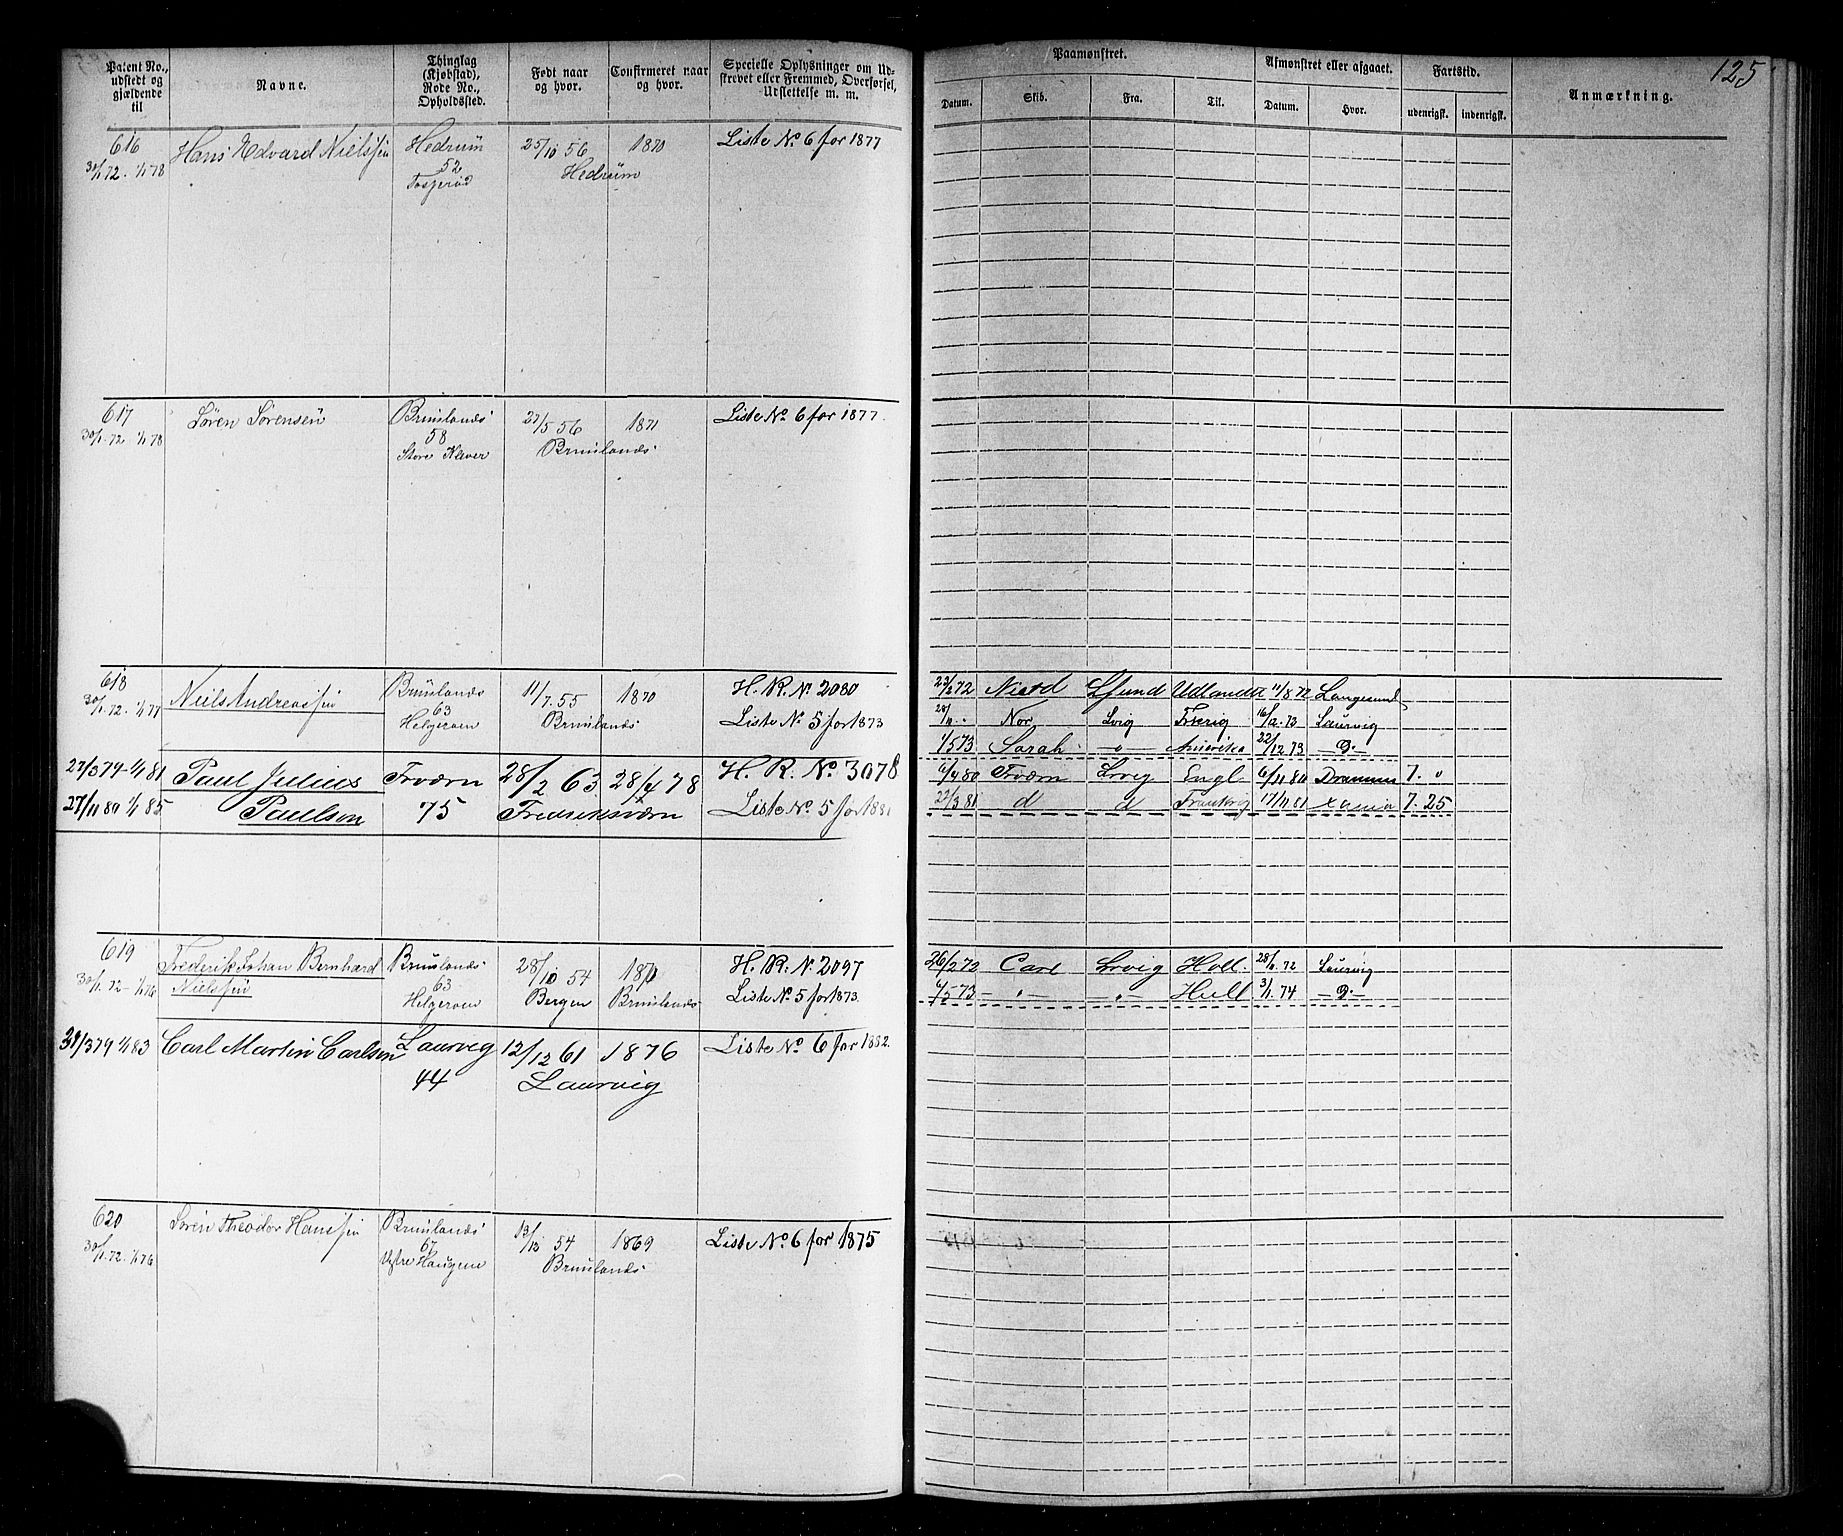 125
Patent No., udstedt og gjældende til
Navne.
Thinglag (Kjøbstad), Rode No., Opholdssted.
Født naar og hvor.
Confirmeret naar og hvor.
Specielle Oplysninger om Udskrevet eller Fremmed, Overførsel, Udslettelse m. m.
Paamønstret.
Afmønstret eller afgaaet.
Fartstid.
Anmærkning.
Datum. Skib. Fra. Til. Datum. Hvor. udenrigsk. indenrigsk.
616 Hans Edvard Nielssen Hedrum 25/10 56 1870 Liste No 6 for 1877
30/1 72. 1/1 78 52 Hedrum
617 Søren Sørensen Brunlands 27/5 56 1871 Liste No 6 for 1877.
30/1. 72. 1/1 78 58 Brunlands
Store Klever
618 Niels Andreassen Brunlands 11/7. 55 1870 H. R. No 2080
30/1. 72. 1/1 77 63 Brunlands Liste No 5 for 1873
Helgeroen
27/3 79 1/1 81 Paul Julius Frværn 28/2 63 28/4 78 H. R. No. 3078
27/11 80 1/1 85 Paulsen 75 Fredriksværn Liste No. 5 for 1881
619 Frederik Johan Bernhard Brunlands 28/10 54 1870 H. R. No 2097
30/1. 72 - 1/1 76 Nielssen 63 Bergen Brunlands Liste No. 5 for 1873.
Helgeroen
31/3 79 1/1 83 Carl Martin Carlsen Laurvig 12/12 61 1876 Liste No 6 for 1882.
44 Laurvig
620 Søren Theodor Hanssen Brunlands 54 1869 Liste No 6 for 1875
30/1. 72. 1/1 76 67 Brunlands
Haugene
72 Lfund Udlandet 11/8 72 Langesund
Nor Lvig 73 Laurvig
1/5 73 Sarah - " - Amerika 22/12 73 - D -
6/4 80 Frværn Lrvig Engl 6/11 80 Drammen 7. "
22/3 81 d d Frankrig 17/11 81 7. 25
26/2 72 Carl Lrvig Holl. 72 Laurvig
6/5 73 - " - - " - Hull 3/1. 74 - D -